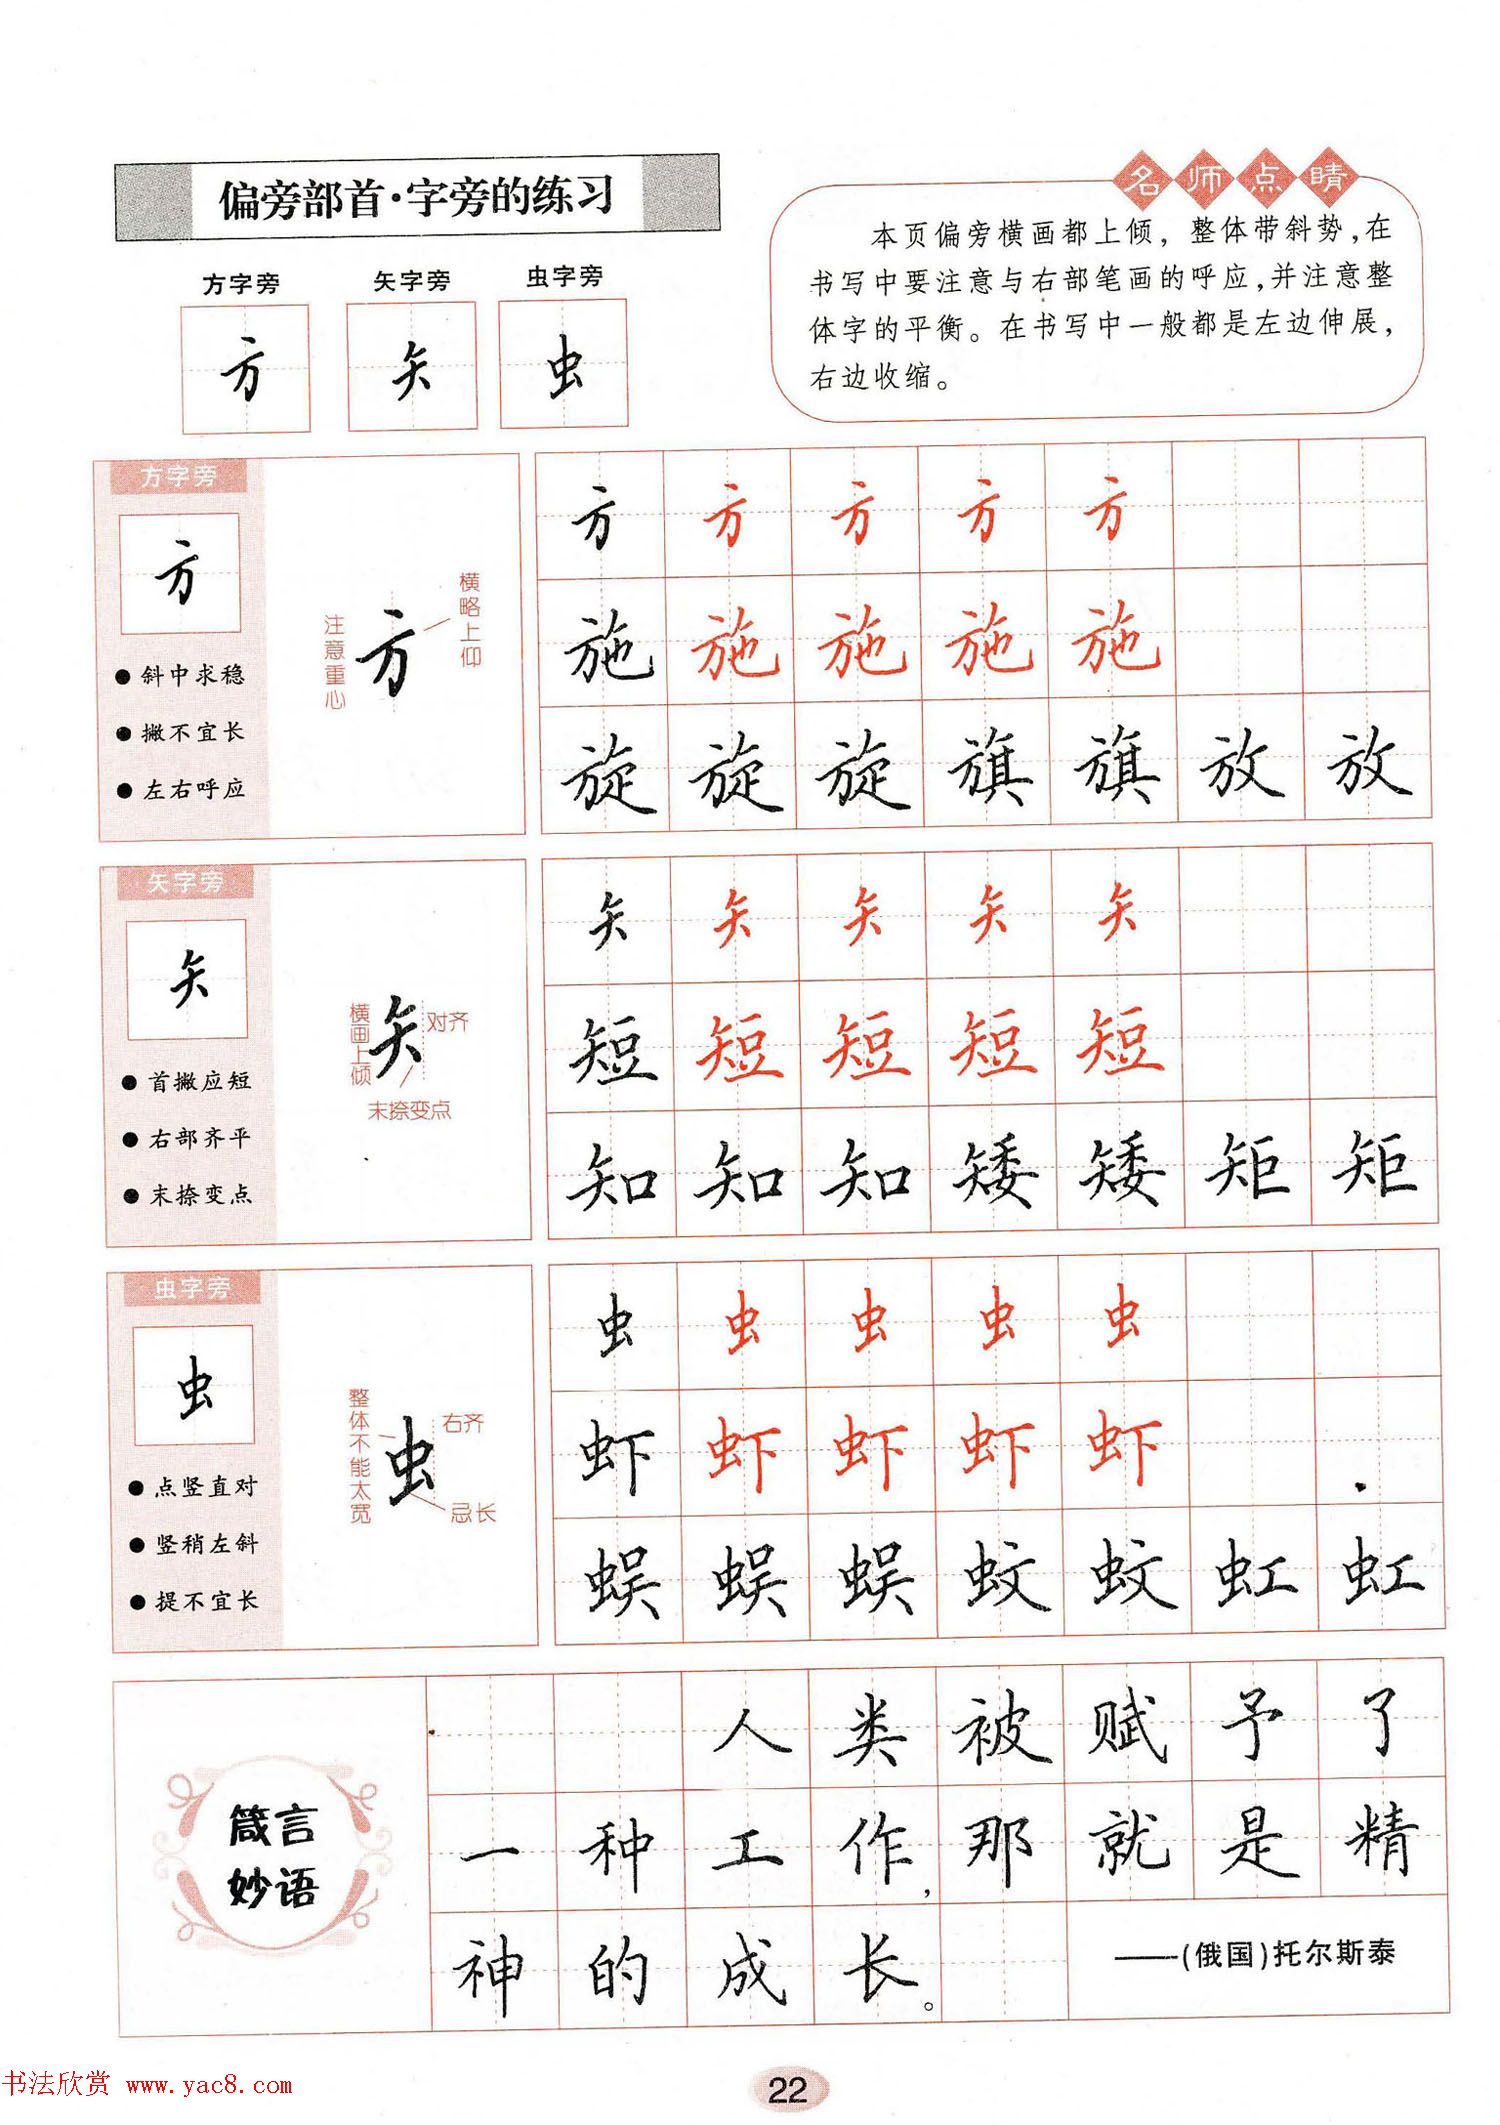 偏旁部首·字旁的练习
名师点睛
本页偏旁横画都上倾，整体带斜势，在
书写中要注意与右部笔画的呼应，并注意整
体字的平衡。在书写中一般都是左边伸展，
右边收缩。
方字旁 矢字旁 虫字旁
方 矢 虫
方字旁
方
斜中求稳
撇不宜长
左右呼应
注意重心
方
横略上仰
方 方 方 方 方
施 施 施 施 施
旋 旋 旋 旗 旗 放 放
矢字旁
矢
首撇应短
右部齐平
末捺变点
横画上倾
矢
对齐
末捺变点
矢 矢 矢 矢 矢
短 短 短 短 短
知 知 知 矮 矮 矩 矩
虫字旁
虫
点竖直对
竖稍左斜
提不宜长
整体不能太宽
虫
右齐
忌长
虫 虫 虫 虫 虫
虾 虾 虾 虾 虾
蜈 蜈 蜈 蚊 蚊 虹 虹
箴言
妙语
人类被赋予了
一种工作，那就是精
神的成长。
——(俄国)托尔斯泰
22
书法欣赏 www.yac8.com